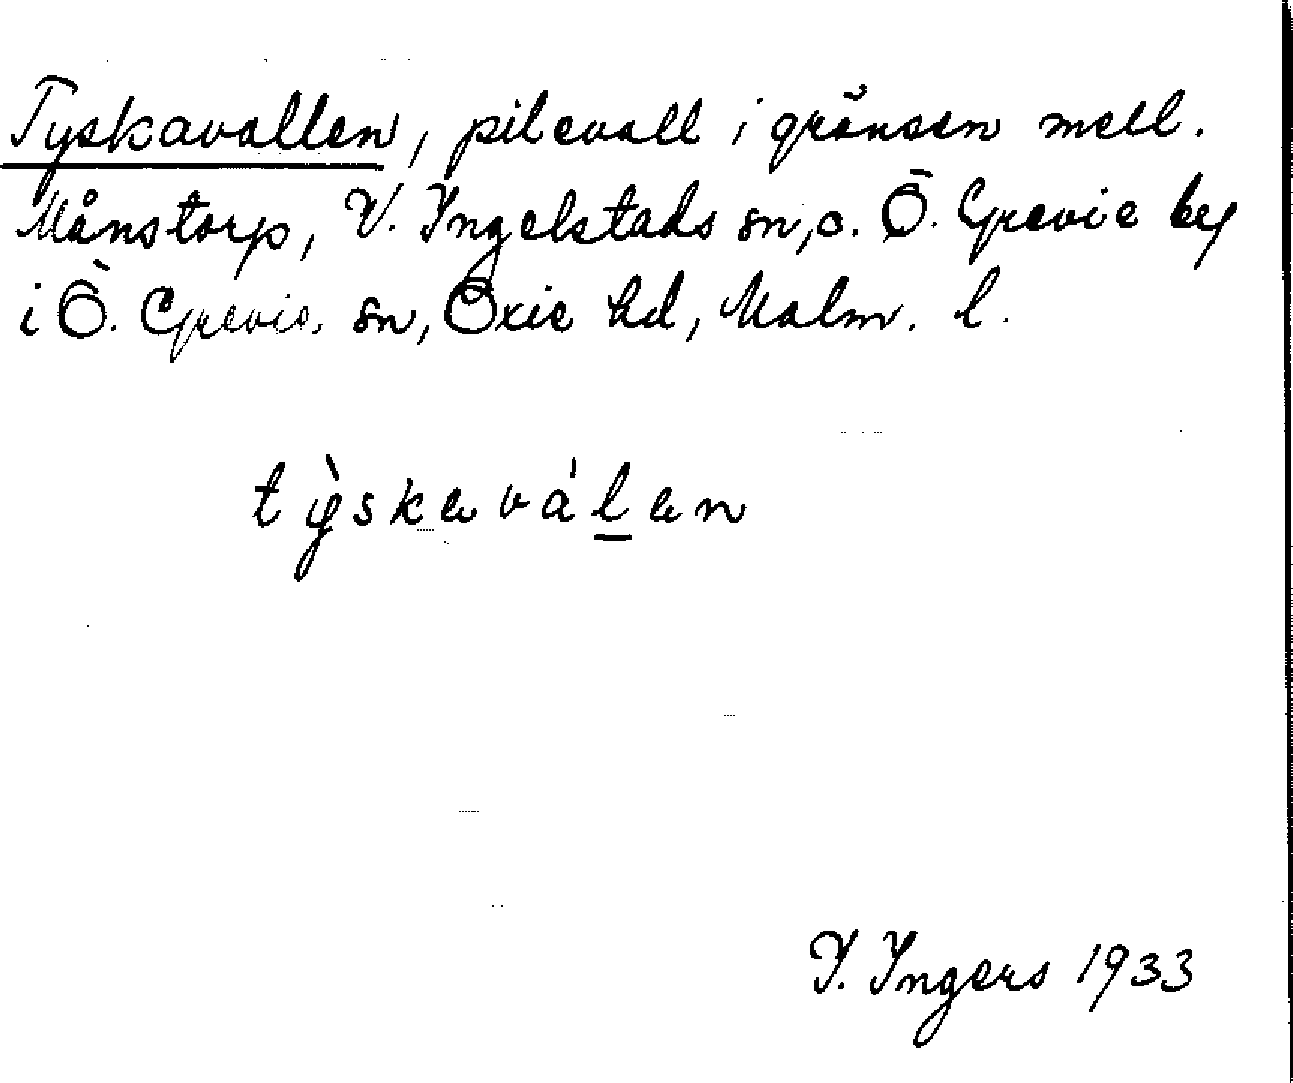 Tyskavallen, pilevall i gränsen mell.
Månstorp, V. Ingelstads sn, o. Ö. Grevie by
i Ö. Grevie sn, Oxie hd, Malm. l.
tỳskaválan
I. Ingers 1933